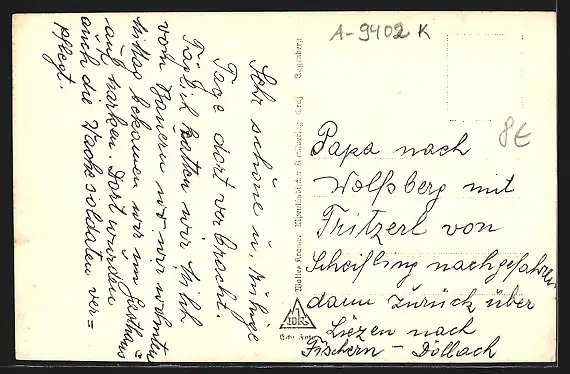 A-9402 K
8€
Sehr schöne u. ruhige
Tage dort verbracht.
Täglich hatten wir Milch
vom Bauern wo wir wohnten
Mittag bekamen wir im Gasthaus =
auf Marken. Dort wurden
auch die Wachsoldaten ver=
pflegt.
Papa nach
Wolfsberg mit
Fritzerl von
Scheifling nachgefahren
dann zurück über
Liezen nach
Fischern - Döllach
Walter Kramer Alpenländischer Kunstverlag Graz Eggenberg
WK